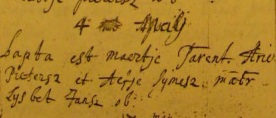 4 Maij
bapta est maertje Parent. Arie
Pietersz et Aefje Symesz matr.
Lysbet Jansz ob.